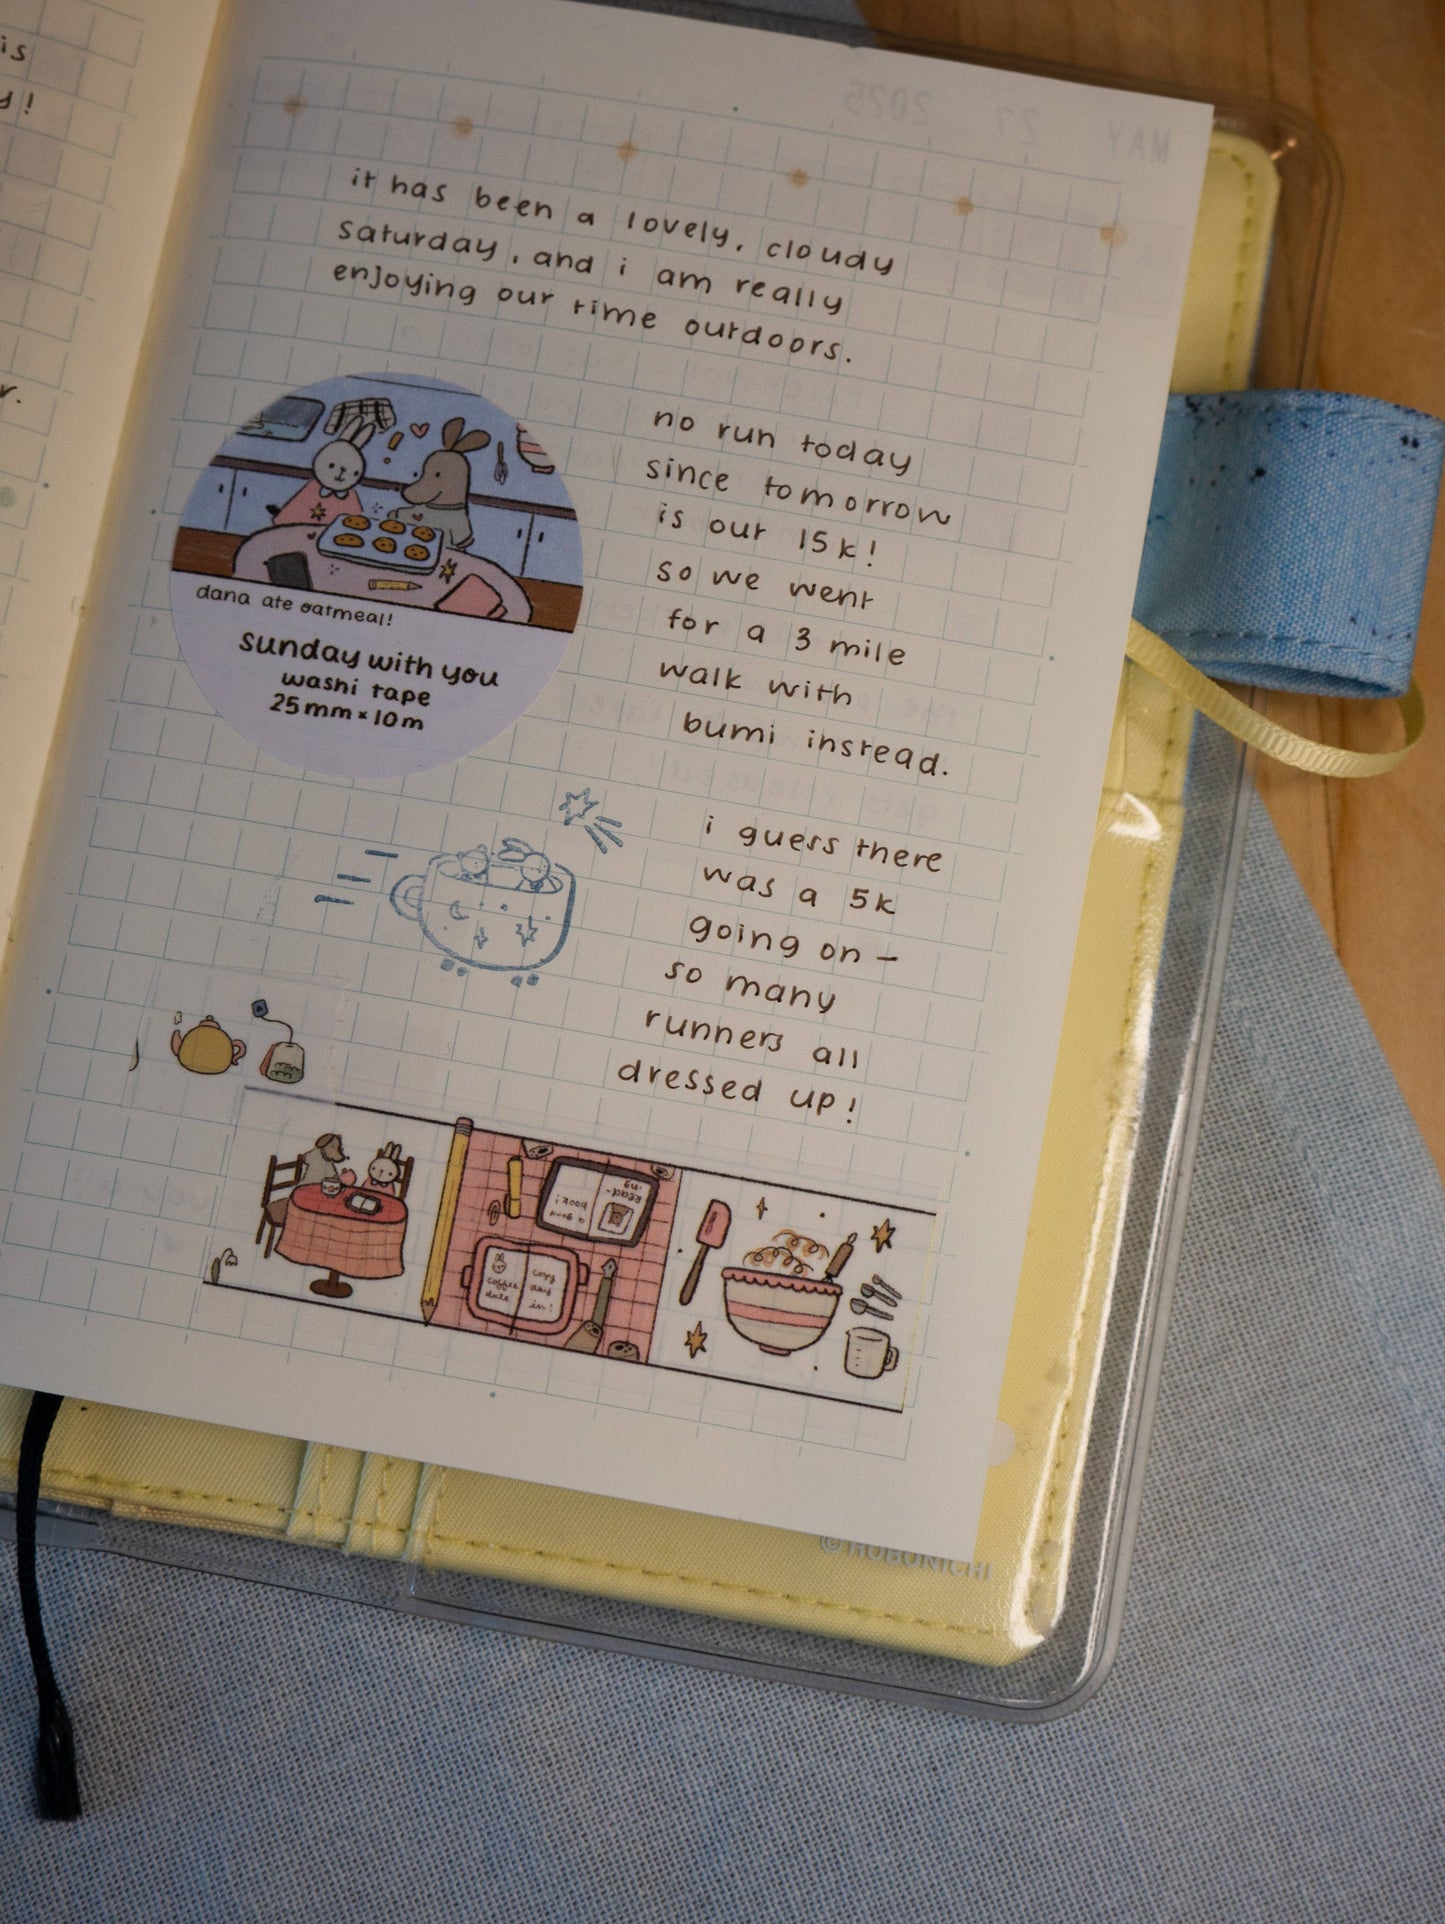 is
y!
r.
MAY 27 2025
it has been a lovely, cloudy
saturday, and i am really
enjoying our time outdoors.
no run today
since tomorrow
is our 15k!
so we went
for a 3 mile
walk with
bumi instead.
dana ate oatmeal!
sunday with you
washi tape
25mm×10m
i guess there
was a 5k
going on —
so many
runners all
dressed up!
Read-
ing
a good
book!
coffee
date
cozy
day
in!
© HOBONICHI